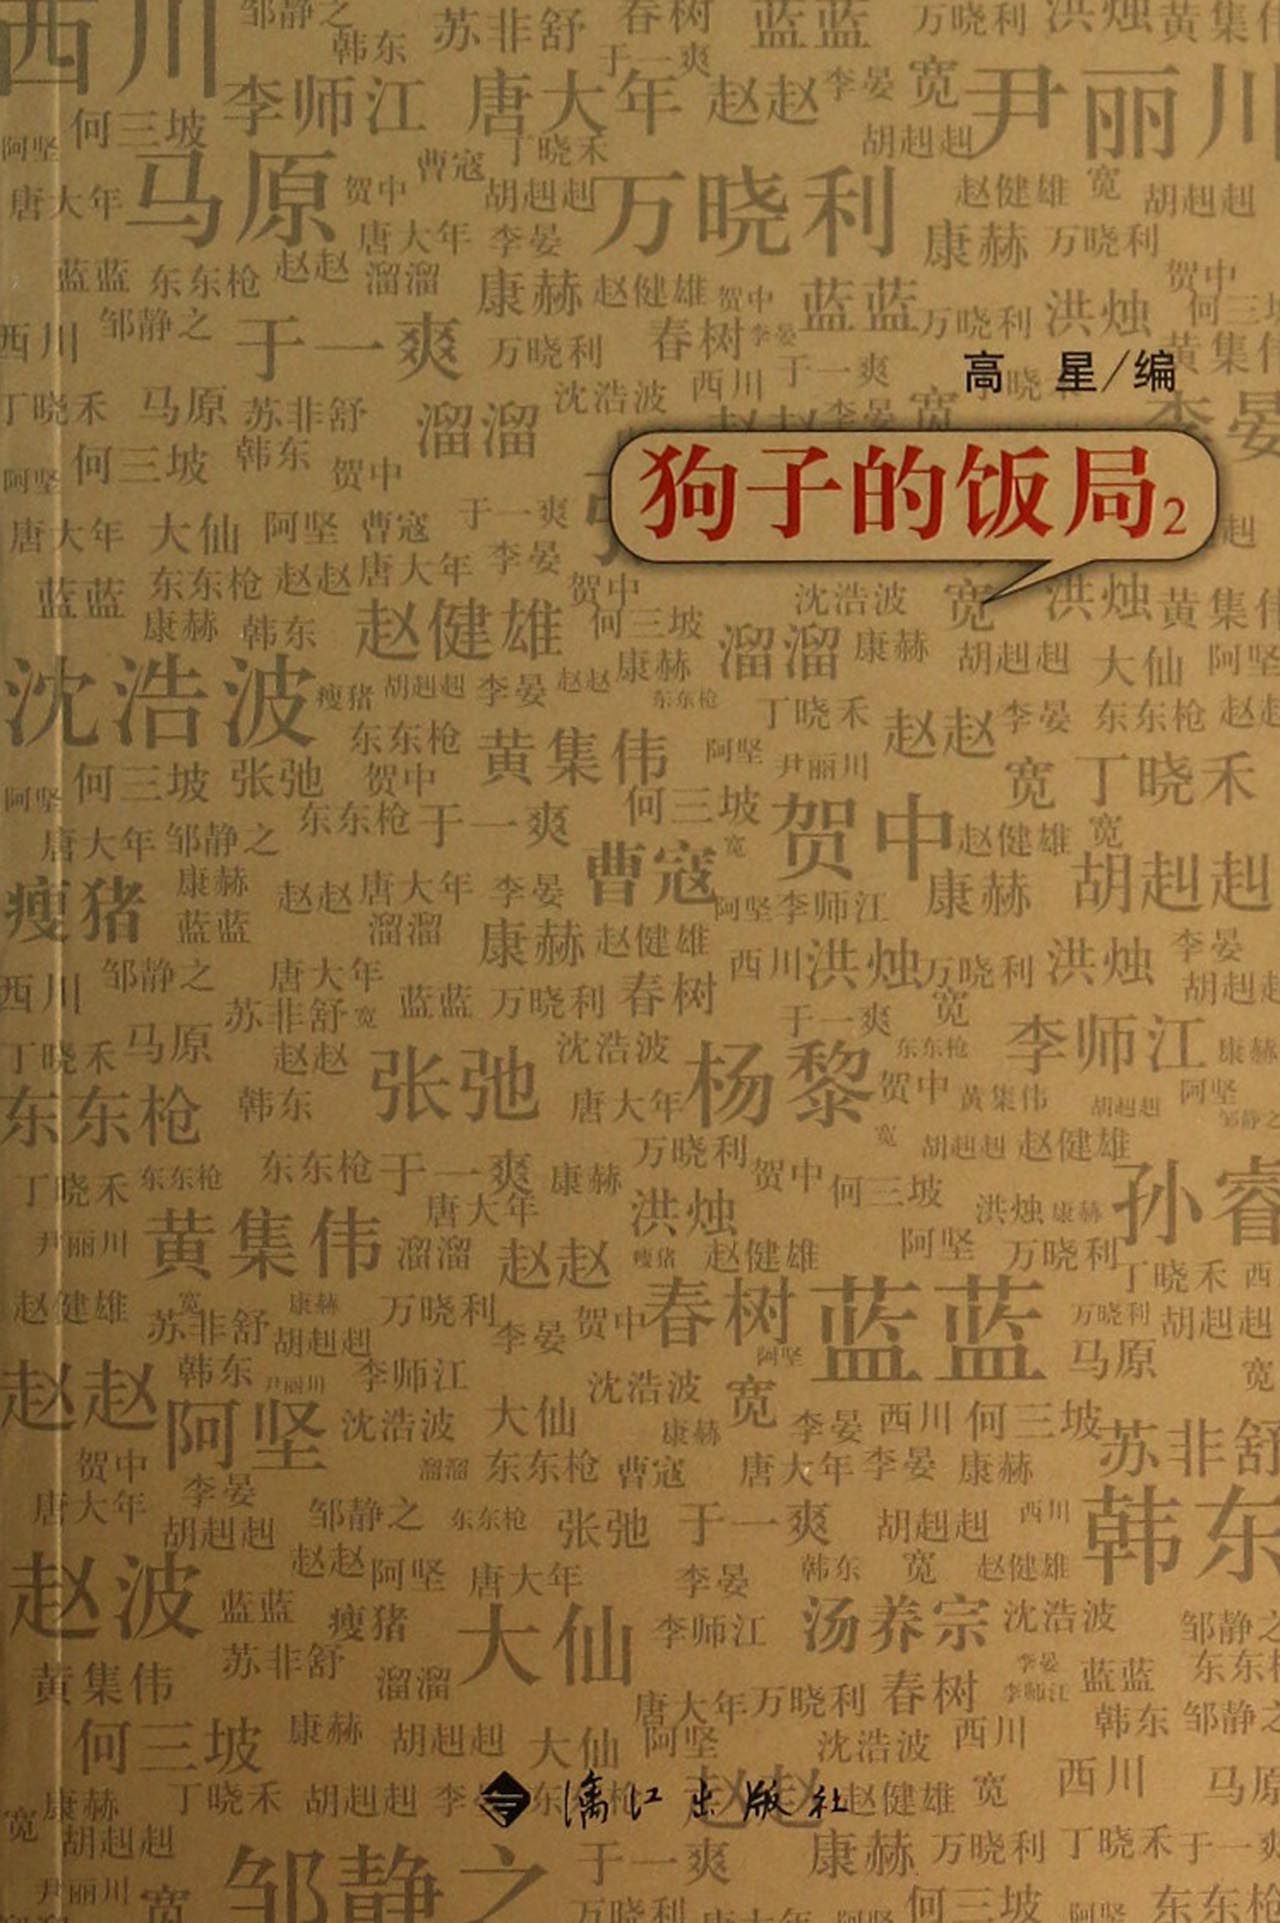 西川 邹静之 韩东 苏非舒 春树 于一爽 蓝蓝 万晓利 洪烛 黄集伟
何三坡 李师江 唐大年 赵赵 李晏 宽 尹丽川
阿坚 马原 曹寇 丁晓禾 胡赳赳
唐大年 贺中 胡赳赳 万晓利 赵健雄 宽 胡赳赳
唐大年 李晏 康赫 万晓利
蓝蓝 东东枪 赵赵 溜溜 康赫 赵健雄 贺中 蓝蓝 万晓利 洪烛 贺中 何三坡
西川 邹静之 于一爽 万晓利 春树 李晏 于一爽 黄集伟
高 星/编
丁晓禾 马原 苏非舒 溜溜 沈浩波 西川 赵赵 李晏 宽 李晏
狗子的饭局2
阿坚 何三坡 韩东 贺中
唐大年 大仙 阿坚 曹寇 于一爽
蓝蓝 东东枪 赵赵 唐大年 李晏 贺中 沈浩波 宽 洪烛 黄集伟
康赫 韩东 赵健雄 何三坡 溜溜 康赫 胡赳赳 大仙 阿坚
沈浩波 瘦猪 胡赳赳 李晏 赵赵 康赫 东东枪 丁晓禾 赵赵 李晏 东东枪
东东枪 黄集伟 阿坚 尹丽川 宽 丁晓禾
阿坚 何三坡 张弛 贺中 何三坡 贺中
唐大年 邹静之 东东枪 于一爽 曹寇 宽 赵健雄 宽
瘦猪 康赫 赵赵 唐大年 李晏 阿坚 李师江 康赫 胡赳赳
蓝蓝 溜溜 康赫 赵健雄 西川 洪烛 万晓利 洪烛 李晏
西川 邹静之 唐大年 蓝蓝 万晓利 春树 胡赳赳
苏非舒 宽 于一爽 宽
丁晓禾 马原 赵赵 张弛 沈浩波 杨黎 东东枪 李师江 康赫
东东枪 韩东 唐大年 贺中 黄集伟 胡赳赳 阿坚 邹静之
丁晓禾 东东枪 东东枪 于一爽 康赫 万晓利 贺中 宽 胡赳赳 赵健雄
唐大年 洪烛 何三坡 洪烛 康赫 孙睿
尹丽川 黄集伟 溜溜 赵赵 瘦猪 赵健雄 阿坚 万晓利 丁晓禾
赵健雄 宽 苏非舒 康赫 胡赳赳 万晓利 李晏 贺中 春树 蓝蓝 万晓利 胡赳赳
赵赵 韩东 尹丽川 李师江 沈浩波 阿坚 马原 宽
阿坚 沈浩波 大仙 康赫 宽 李晏 西川 何三坡 苏非舒
贺中 溜溜 东东枪 曹寇 唐大年 李晏 康赫
唐大年 李晏 胡赳赳 邹静之 东东枪 张弛 于一爽 胡赳赳 西川 韩东
赵波 赵赵 阿坚 唐大年 李晏 韩东 宽 赵健雄
蓝蓝 瘦猪 大仙 李师江 汤养宗 沈浩波 邹静之
黄集伟 苏非舒 溜溜 春树 李晏 李师江 蓝蓝 东东枪
唐大年 万晓利 韩东 邹静之
何三坡 康赫 胡赳赳 大仙 阿坚 沈浩波 西川
康赫 丁晓禾 胡赳赳 赵赵 赵健雄 宽 西川 马原
漓江出版社
宽 胡赳赳 邹静之 于一爽 康赫 万晓利 丁晓禾 于一爽
尹丽川 宽 万晓利 唐大年 阿坚 何三坡 阿坚 东东枪